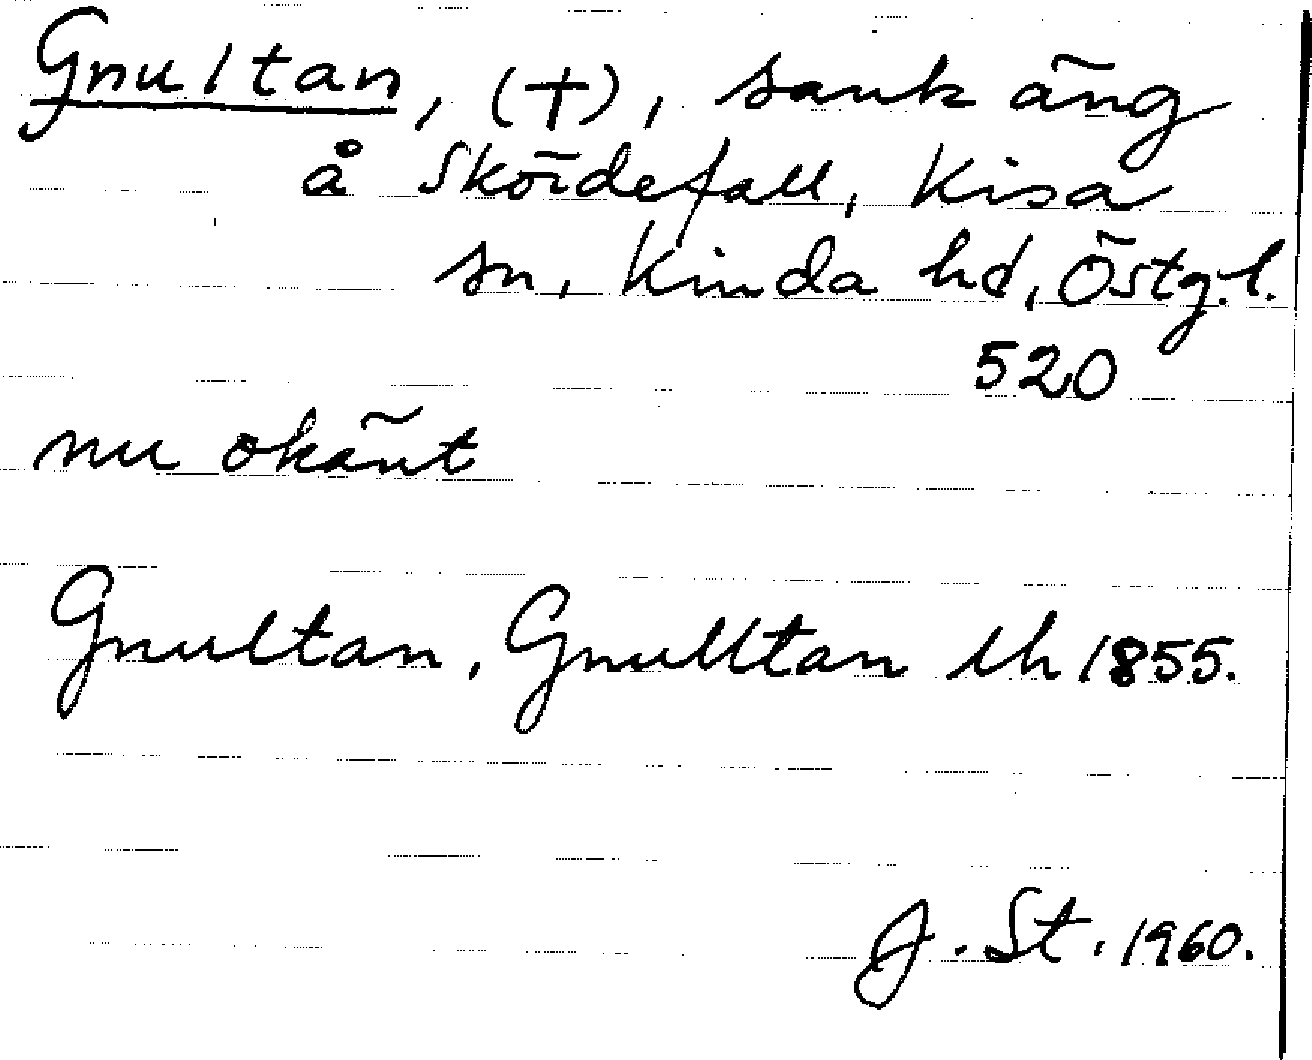 Gnultan, (†), sank äng
å Sköldefall, Kisa
sn, Kinda hd, Östg. l.
520
nu okänt
Gnultan, Gnulltan lh 1855.
J. St. 1960.